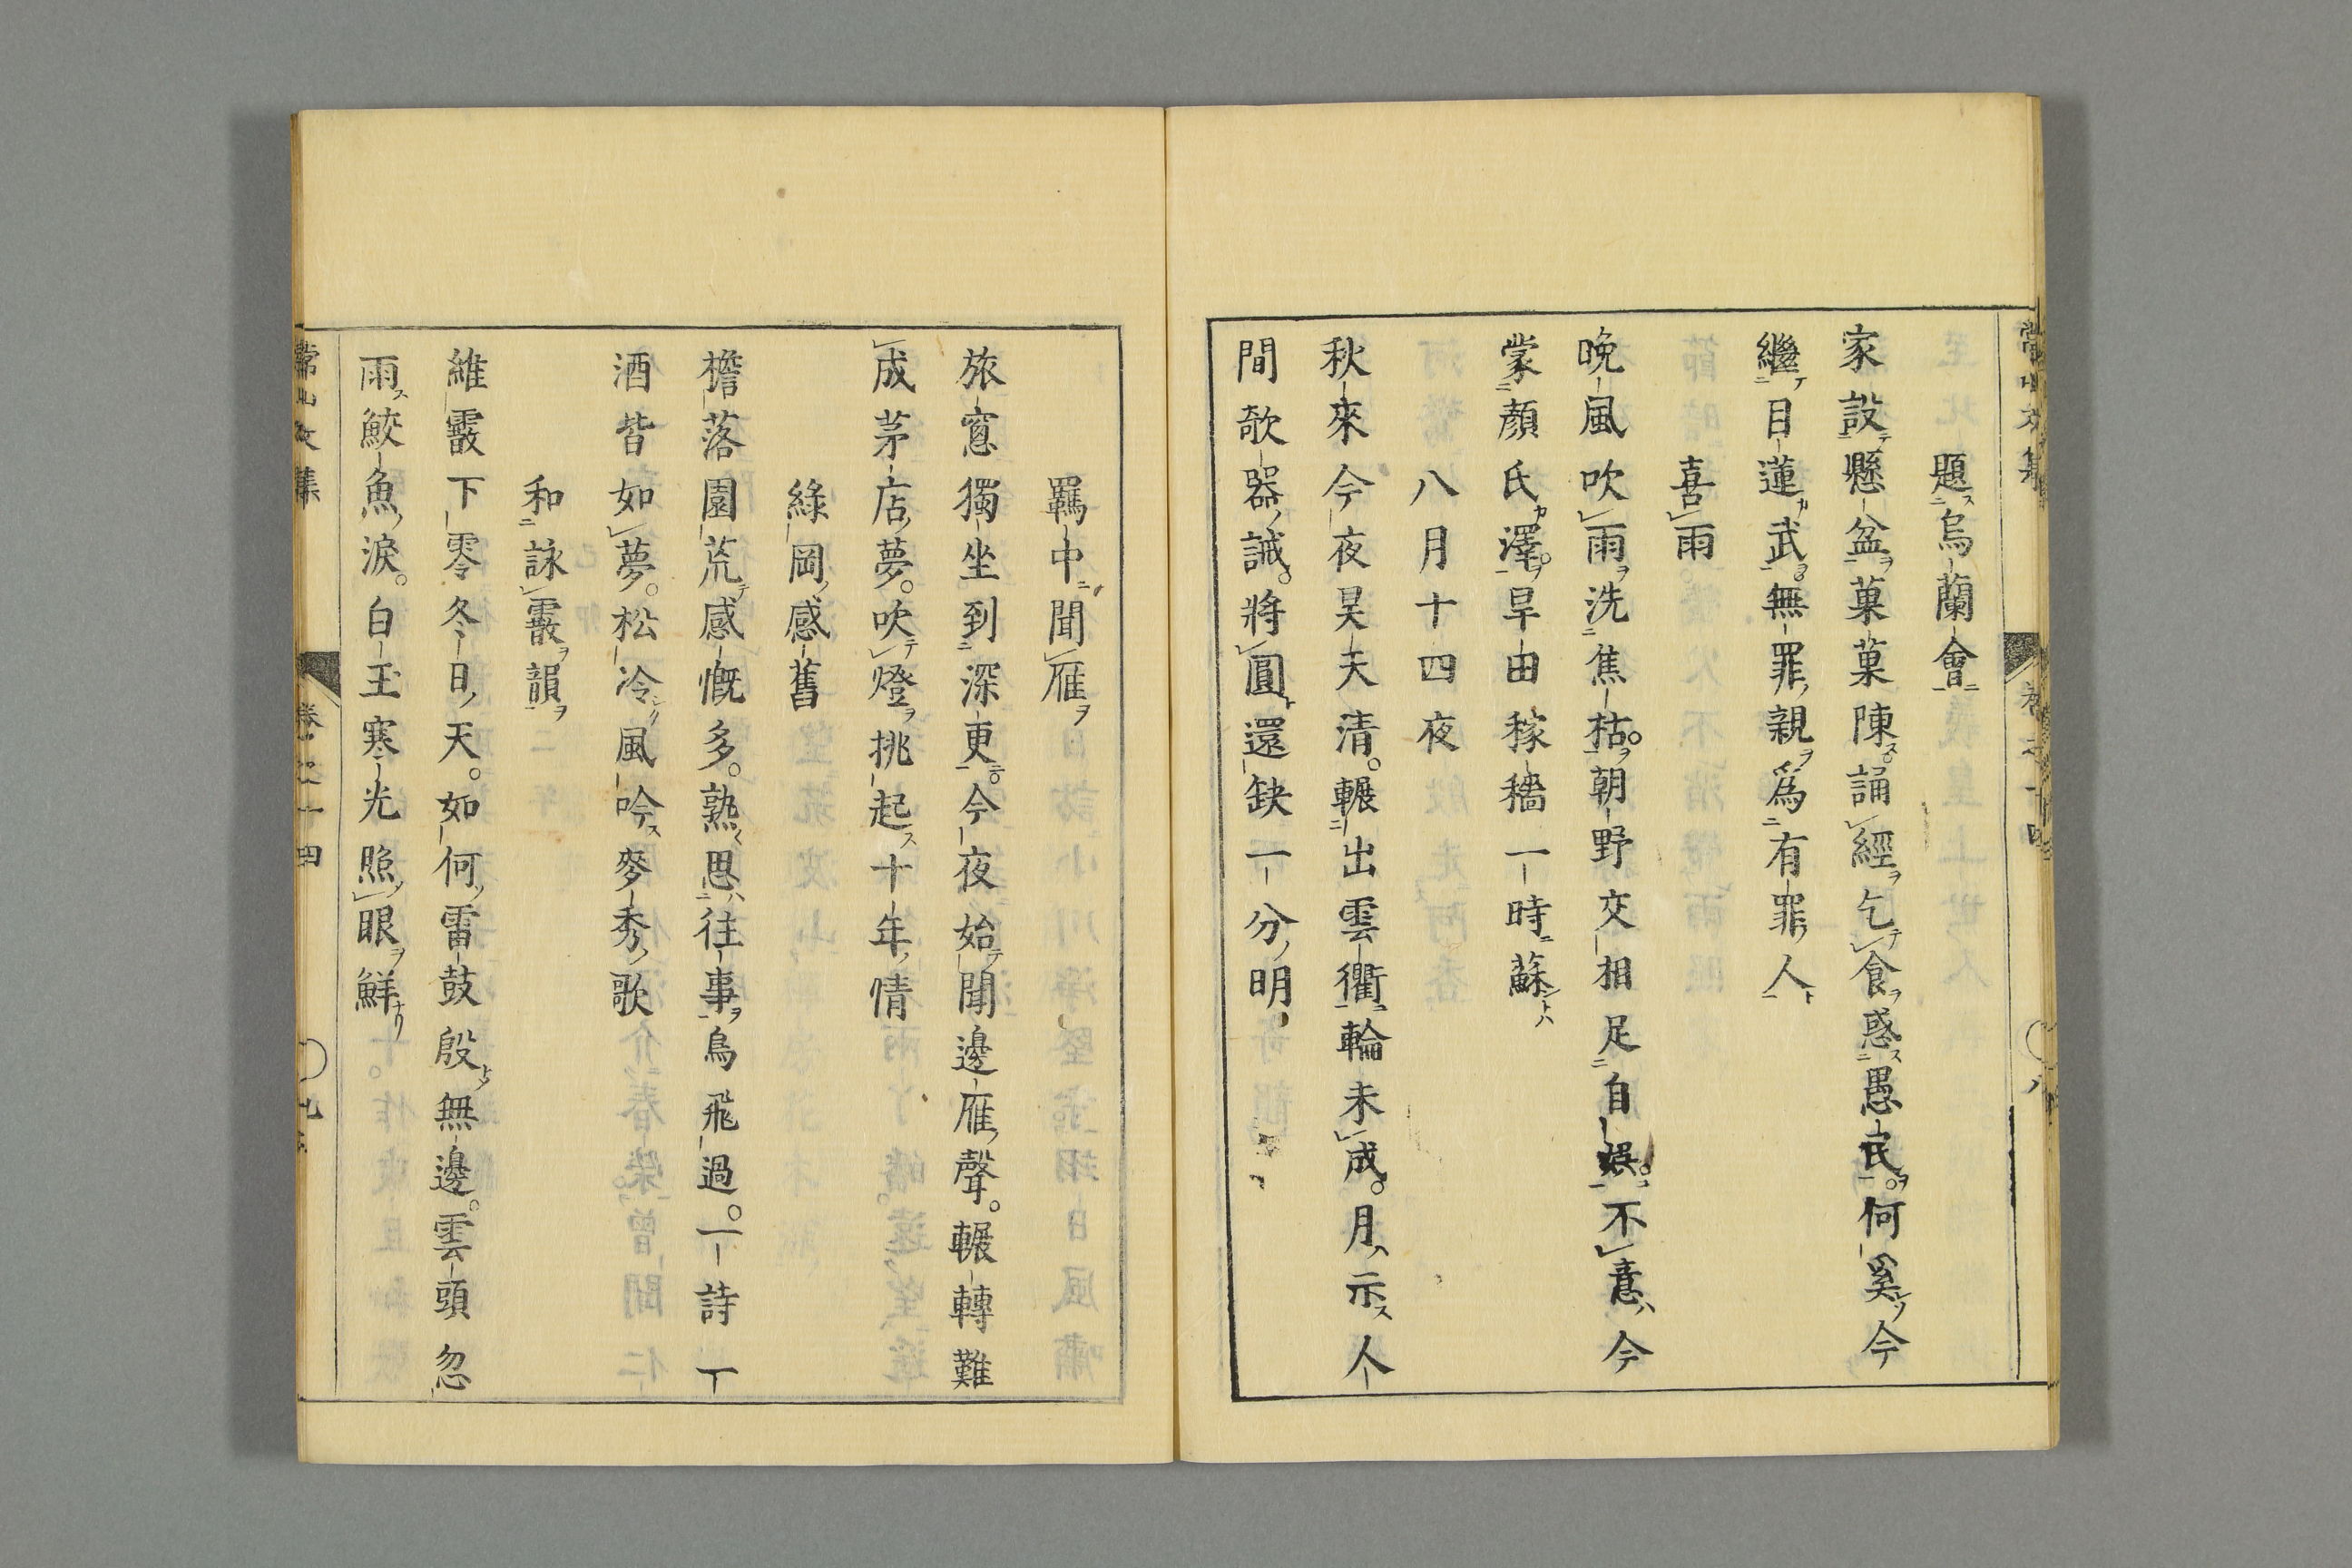 題烏蘭會
家設懸盆菓菓陳誦經乞食惑愚民何奚今
繼目蓮武無罪親爲有罪人
喜雨
晩風吹雨洗焦枯朝野交相足自娛不意今
蒙顔氏澤旱由稼穡一時蘇
八月十四夜
秋來今夜昊天清輾出雲衢輪未成月示人
間欹器誡將圓還缺一分明
羈中聞雁
旅窓獨坐到深更今夜始聞邊雁聲輾轉難
成茅店夢吹燈挑起十年情
綠岡感舊
檐落園荒感慨多熟思往事鳥飛過一詩一
酒皆如夢松冷風吟麥秀歌
和詠霰韻
維霰下零冬日天如何雷鼓殷無邊雲頭忽
雨鮫魚淚白玉寒光照眼鮮
常山文集
卷之十四
八
常山文集
卷之十四
九